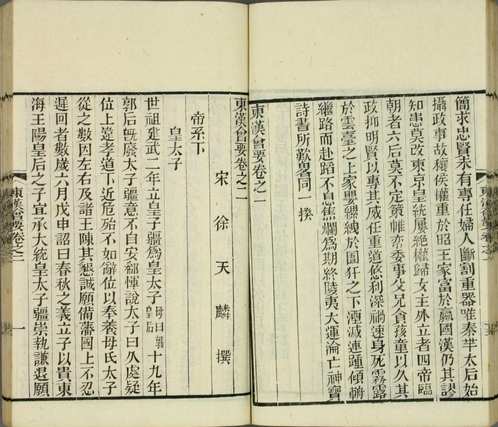 簡求忠賢未有專任婦人斷割重器唯秦芈太后始
攝政事故穰侯權重於昭王家富於嬴國漢仍其謬
知患莫改東京皇統屢絕權歸女主外立者四帝臨
朝者六后莫不定策帷帟委事父兄貪孩童以久其
政抑明賢以專其威任重道悠利深禍速身犯霧露
於雲臺之上家嬰縲絏於圄犴之下湮滅連踵傾輈
繼路而赴蹈不息燋爛爲期終陵夷大運淪亡神寶
詩書所歎畧同一揆
東漢會要卷之一
東漢會要卷之二
宋徐天麟撰
帝系下
皇太子
世祖建武二年立皇子疆爲皇太子母曰郭皇后十九年
郭后旣廢太子疆意不自安郅惲說太子曰久處疑
位上違孝道下近危殆不如辭位以奉養母氏太子
從之數因左右及諸王陳其懇誠願備藩國上不忍
遲回者數歲六月戊申詔曰春秋之義立子以貴東
海王陽皇后之子宜承大統皇太子疆崇執謙退願
東漢會要卷之二
一